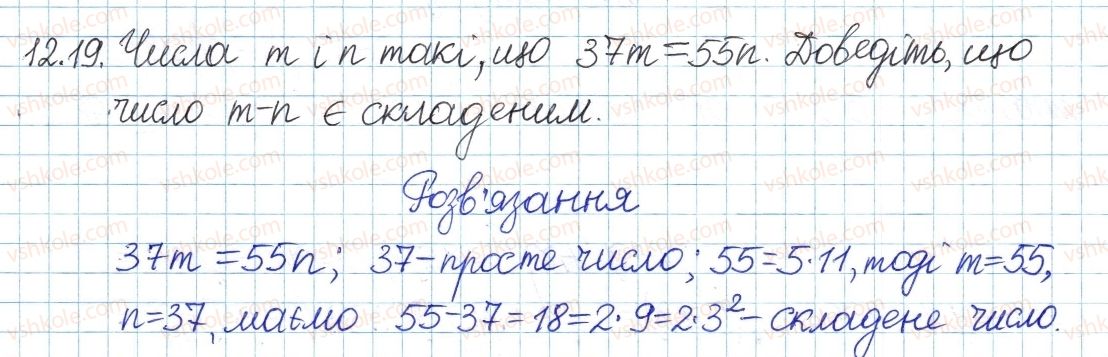 12.19. Числа m і n такі, що 37m = 55n. Доведіть, що
число m-n є складеним.
Розв'язання
37m = 55n; 37 - просте число; 55 = 5·11, тоді m = 55,
n = 37, маємо 55 - 37 = 18 = 2·9 = 2·3² - складене число.